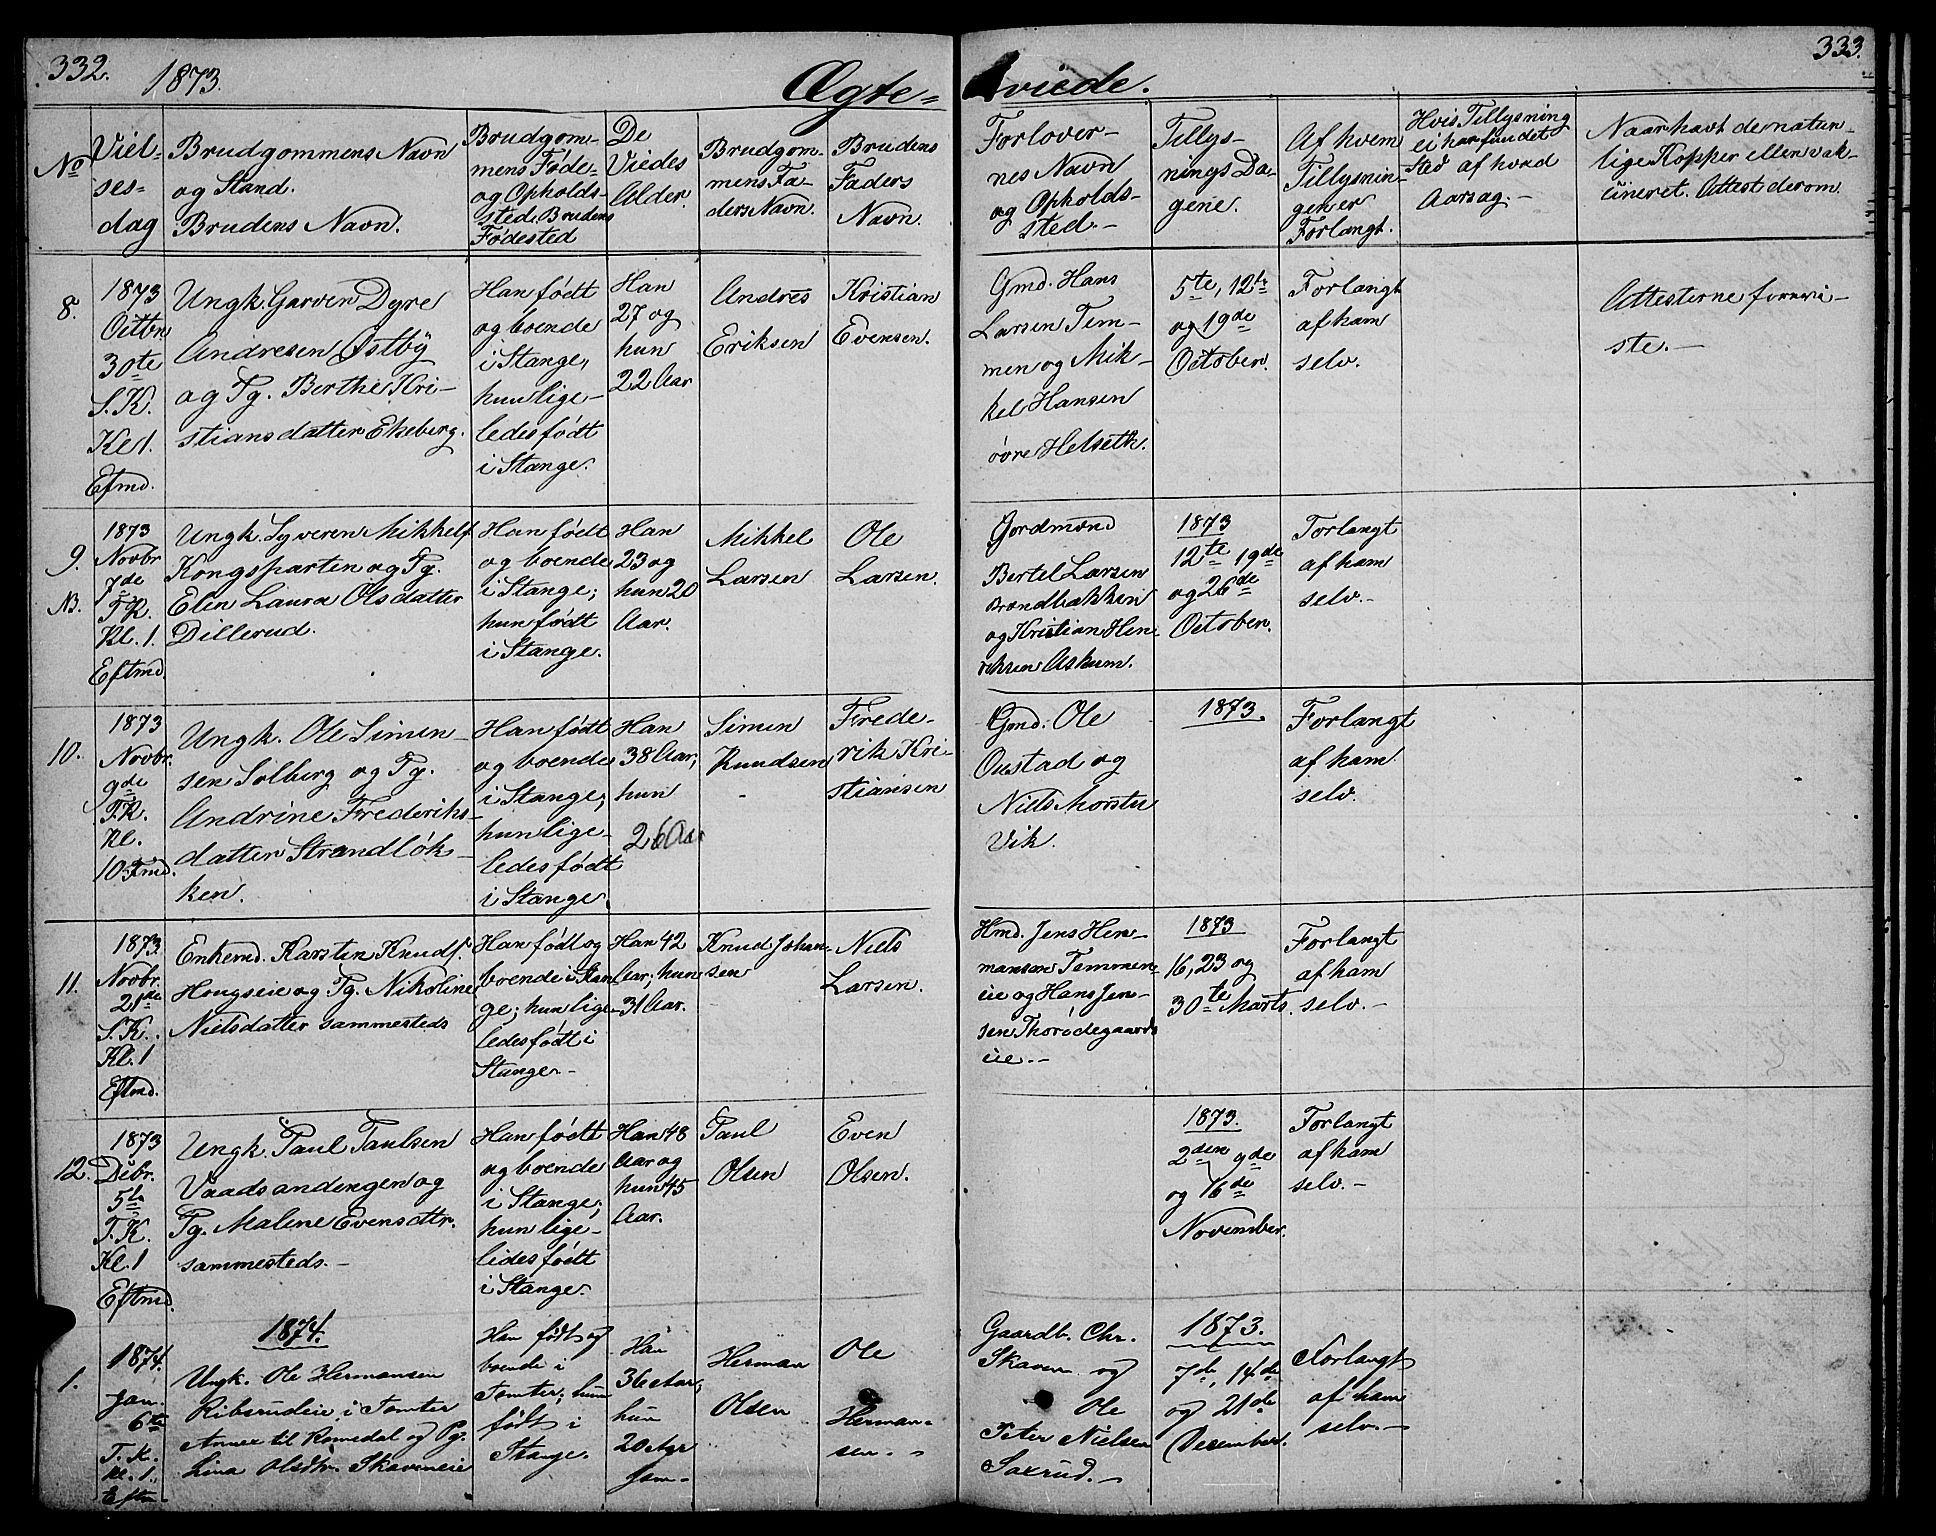 332.
1873.
Ægte-
viede.
333.
No
Viel-
ses-
dag
Brudgommens Navn
og Stand.
Brudens Navn.
Brudgom-
mens Føde-
og Opholds-
sted, Brudens
Fødested
De
Viedes
Alder.
Brudgom-
mens Fa-
ders Navn.
Brudens
Faders
Navn.
Forlover-
nes Navn
og Opholds-
sted.-
Tillys-
nings Da-
gene.
Af hvem
Tillysnin-
gen er
Forlangt.
Hvis Tillysning
ei har fundet
sted af hvad
Aarsag.-
Naar havt de natur-
lige Kopper eller vak-
cineret. Attest derom.
8.
1873
Octbr
30te
S.K.
Kl. 1.
Efmd.
Ungk. Garven Dyre
Andresen Østby
og Pg. Berthe Kri-
stiansdatter Ekeberg.
Han født
og boende
i Stange,
hun lige-
ledes født
i Stange.
Han
27 og
hun
22 Aar
Andres
Eriksen
Kristian
Evensen.
Gmd. Hans
Larsen Tem-
men og Mik-
kel Hansen
övre Helseth.
5te, 12te
og 19de
October.
Forlangt
af ham
selv.
Attesterne forevi-
ste.-
9.
NB.
1873
Novbr
7de
T.K.
Kl. 1.
Eftmd.
Ungk. Syveren Mikkels.
Kongsparten og Pg.
Elen Laura Olsdatter
Dillerud.
Han født
og boende
i Stange;
hun født
i Stange.
Han
23 og
hun 20
Aar.
Mikkel
Larsen
Ole
Larsen.
Gordmand
Bertel Larsen
Brændbækken
og Kristian Hen-
riksen Askum.
1873
12te 19de
og 26de
October.
Forlangt
af ham
selv.-
10.
1873
Novbr.
9de
T.K.
Kl.
10 Fmd.
Ungk. Ole Simen-
sen Solberg og Pg.
Andrine Frederiks-
datter Strandløk-
ken.
Han født
og boende
i Stange;
hun lige-
ledes født
i Stange.
Han
38 Aar,
hun
26 Aar
Simen
Knudsen
Frede-
rik Kri-
stiansen
Gmd. Ole
Oustad og
Niels Morstu
Vik.
1873.
Forlangt
af ham
selv.
11.
1873.
Novbr.
21de
S.K.
Kl. 1
Eftmd.
Enkemd. Karsten Knuds.
Hougseie og Pg. Nikoline
Nielsdatter sammesteds
Han født og
boende i Stan-
ge; hun lige-
ledes født i
Stange-
Han 42
Aar; hun
31 Aar.
Knud Johan-
sen
Niels
Larsen.
Hmd. Jens Her-
mansen Temmen-
eie og Hans Jen-
sen Thorödegaards
eie.-
1873
16, 23 og
30te Marts.
Forlangt
af ham
selv.-
12.
1873
Debr.
5te
T.K.
Kl. 1
Eftmd.
Ungk. Paul Paulsen
Vaadsandengen og
Pg. Malene Evensdtr.
sammesteds.-
Han født
og boende
i Stange;
hun lige-
ledes født
i Stange.
Han 48
Aar og
hun 45
Aar.
Paul
Olsen
Even
Olsen.
1873.
2den 9de
og 16de
November.
Forlangt
af ham
selv.-
1874.
1.
1874.
Jan.
6te
T.K.
Kl. 1.
Eftm
Ungk. Ole Hermansen
Ribsrudeie i Tomter
Annex til Romedal og Pg.
Lina Olsdtr. Skaveneie
Han født og
boende i
Tomter; hun
født i
Stange.
Han
36 Aar;
hun
20 Aar
Herman
Olsen
Ole
Herman-
sen.-
Gaardb. Chr.
Skaven og
Ole
Peter Nielsen
Saxrud.-
1873.
7de, 14de
og 21de
December.
Forlangt
af ham
selv.-